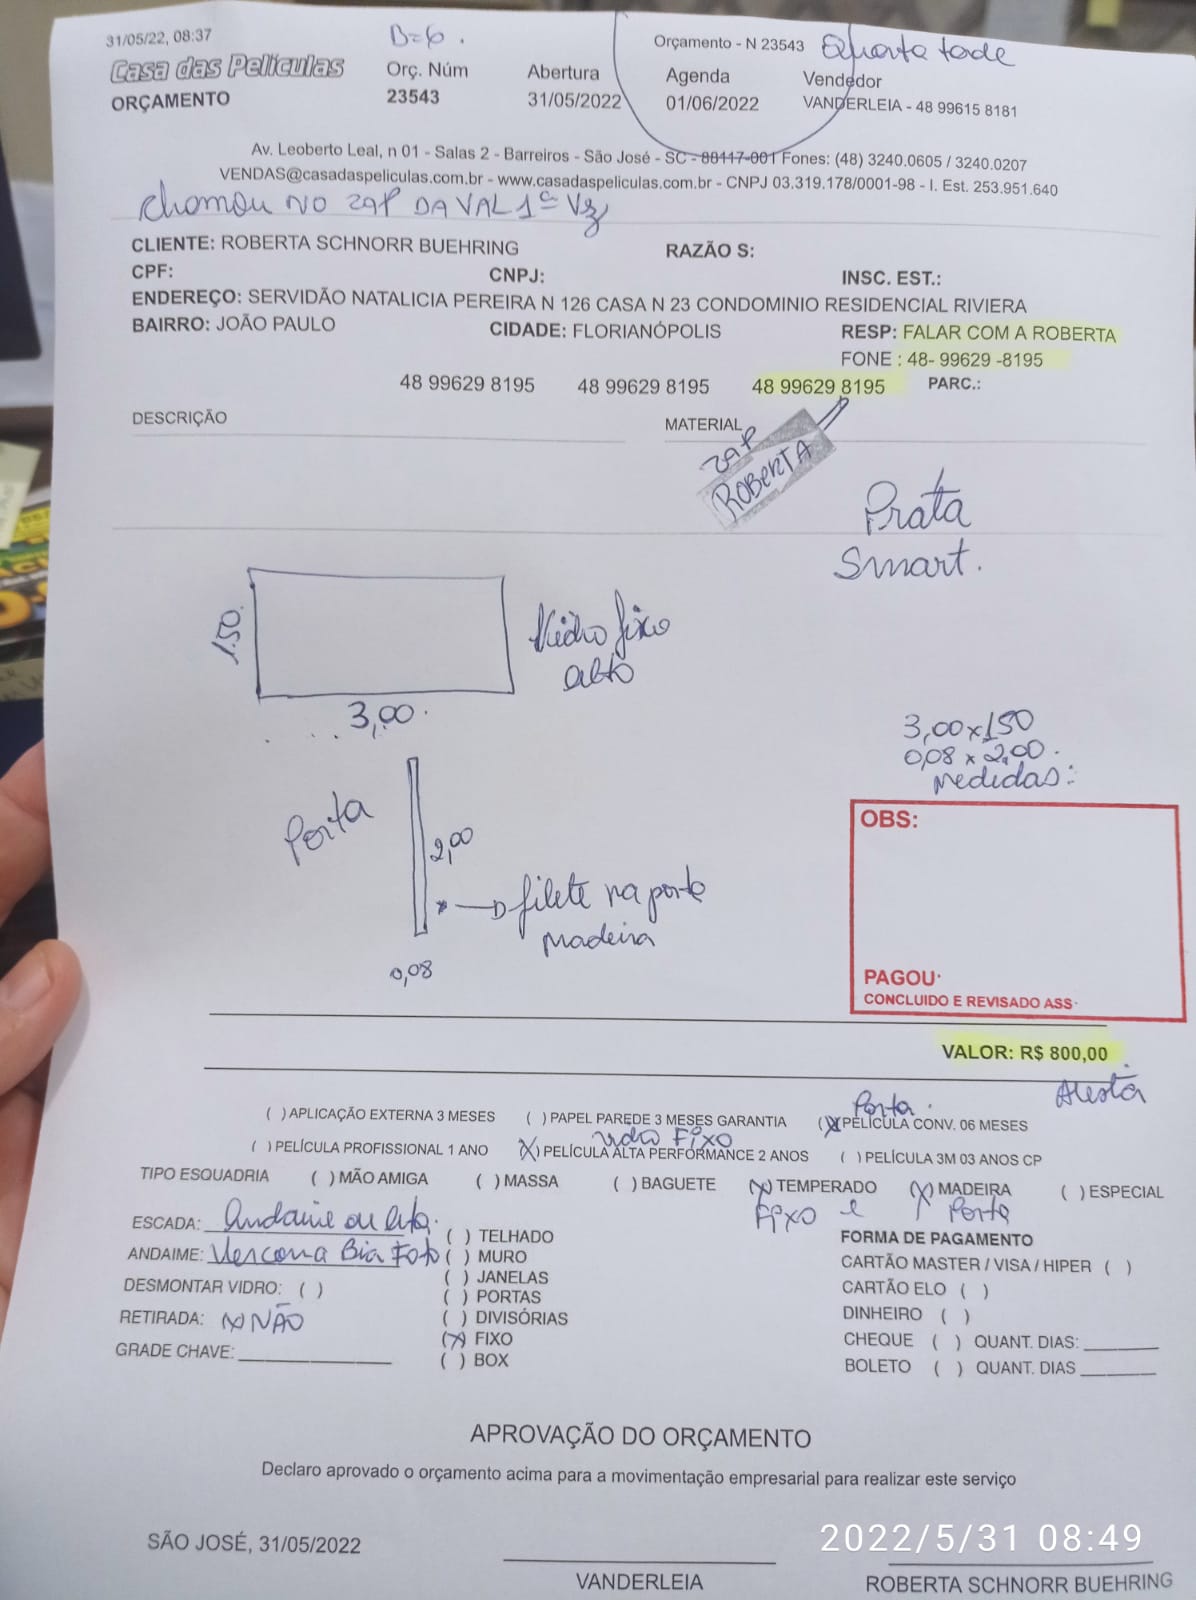 31/05/22, 08:37
B=6.
Orçamento - N 23543 Quarta tarde
Casa das Películas
ORÇAMENTO
Orç. Núm
23543
Abertura
31/05/2022
Agenda
01/06/2022
Vendedor
VANDERLEIA - 48 99615 8181
Av. Leoberto Leal, n 01 - Salas 2 - Barreiros - São José - SC - 88117-001 Fones: (48) 3240.0605 / 3240.0207
VENDAS@casadaspeliculas.com.br - www.casadaspeliculas.com.br - CNPJ 03.319.178/0001-98 - I. Est. 253.951.640
chamou NO ZAP DA VAL 1ª Vz
CLIENTE: ROBERTA SCHNORR BUEHRING RAZÃO S:
CPF: CNPJ: INSC. EST.:
ENDEREÇO: SERVIDÃO NATALICIA PEREIRA N 126 CASA N 23 CONDOMINIO RESIDENCIAL RIVIERA
BAIRRO: JOÃO PAULO CIDADE: FLORIANÓPOLIS RESP: FALAR COM A ROBERTA
FONE : 48- 99629 -8195
48 99629 8195 48 99629 8195 48 99629 8195 PARC.:
DESCRIÇÃO MATERIAL
ZAP
ROBERTA
Prata
Smart.
1.50.
Vidro fixo
alto
3,00.
3,00x150
0,08 x 2,00.
Medidas:
Porta
2,00
filete na porta
madeira
0,08
OBS:
PAGOU:
CONCLUIDO E REVISADO ASS:
VALOR: R$ 800,00
Porta.
( ) APLICAÇÃO EXTERNA 3 MESES ( ) PAPEL PAREDE 3 MESES GARANTIA (X) PELÍCULA CONV. 06 MESES
vidro Fixo
( ) PELÍCULA PROFISSIONAL 1 ANO (X) PELÍCULA ALTA PERFORMANCE 2 ANOS ( ) PELÍCULA 3M 03 ANOS CP
TIPO ESQUADRIA ( ) MÃO AMIGA ( ) MASSA ( ) BAGUETE (X) TEMPERADO (X) MADEIRA ( ) ESPECIAL
Fixo e Porta
ESCADA: Andaime ou
ANDAIME: Ver com a Bia Foto
DESMONTAR VIDRO: ( )
RETIRADA: (X) NÃO
GRADE CHAVE:
( ) TELHADO
( ) MURO
( ) JANELAS
( ) PORTAS
( ) DIVISÓRIAS
(X) FIXO
( ) BOX
FORMA DE PAGAMENTO
CARTÃO MASTER / VISA / HIPER ( )
CARTÃO ELO ( )
DINHEIRO ( )
CHEQUE ( ) QUANT. DIAS:
BOLETO ( ) QUANT. DIAS
APROVAÇÃO DO ORÇAMENTO
Declaro aprovado o orçamento acima para a movimentação empresarial para realizar este serviço
SÃO JOSÉ, 31/05/2022
2022/5/31 08:49
VANDERLEIA
ROBERTA SCHNORR BUEHRING